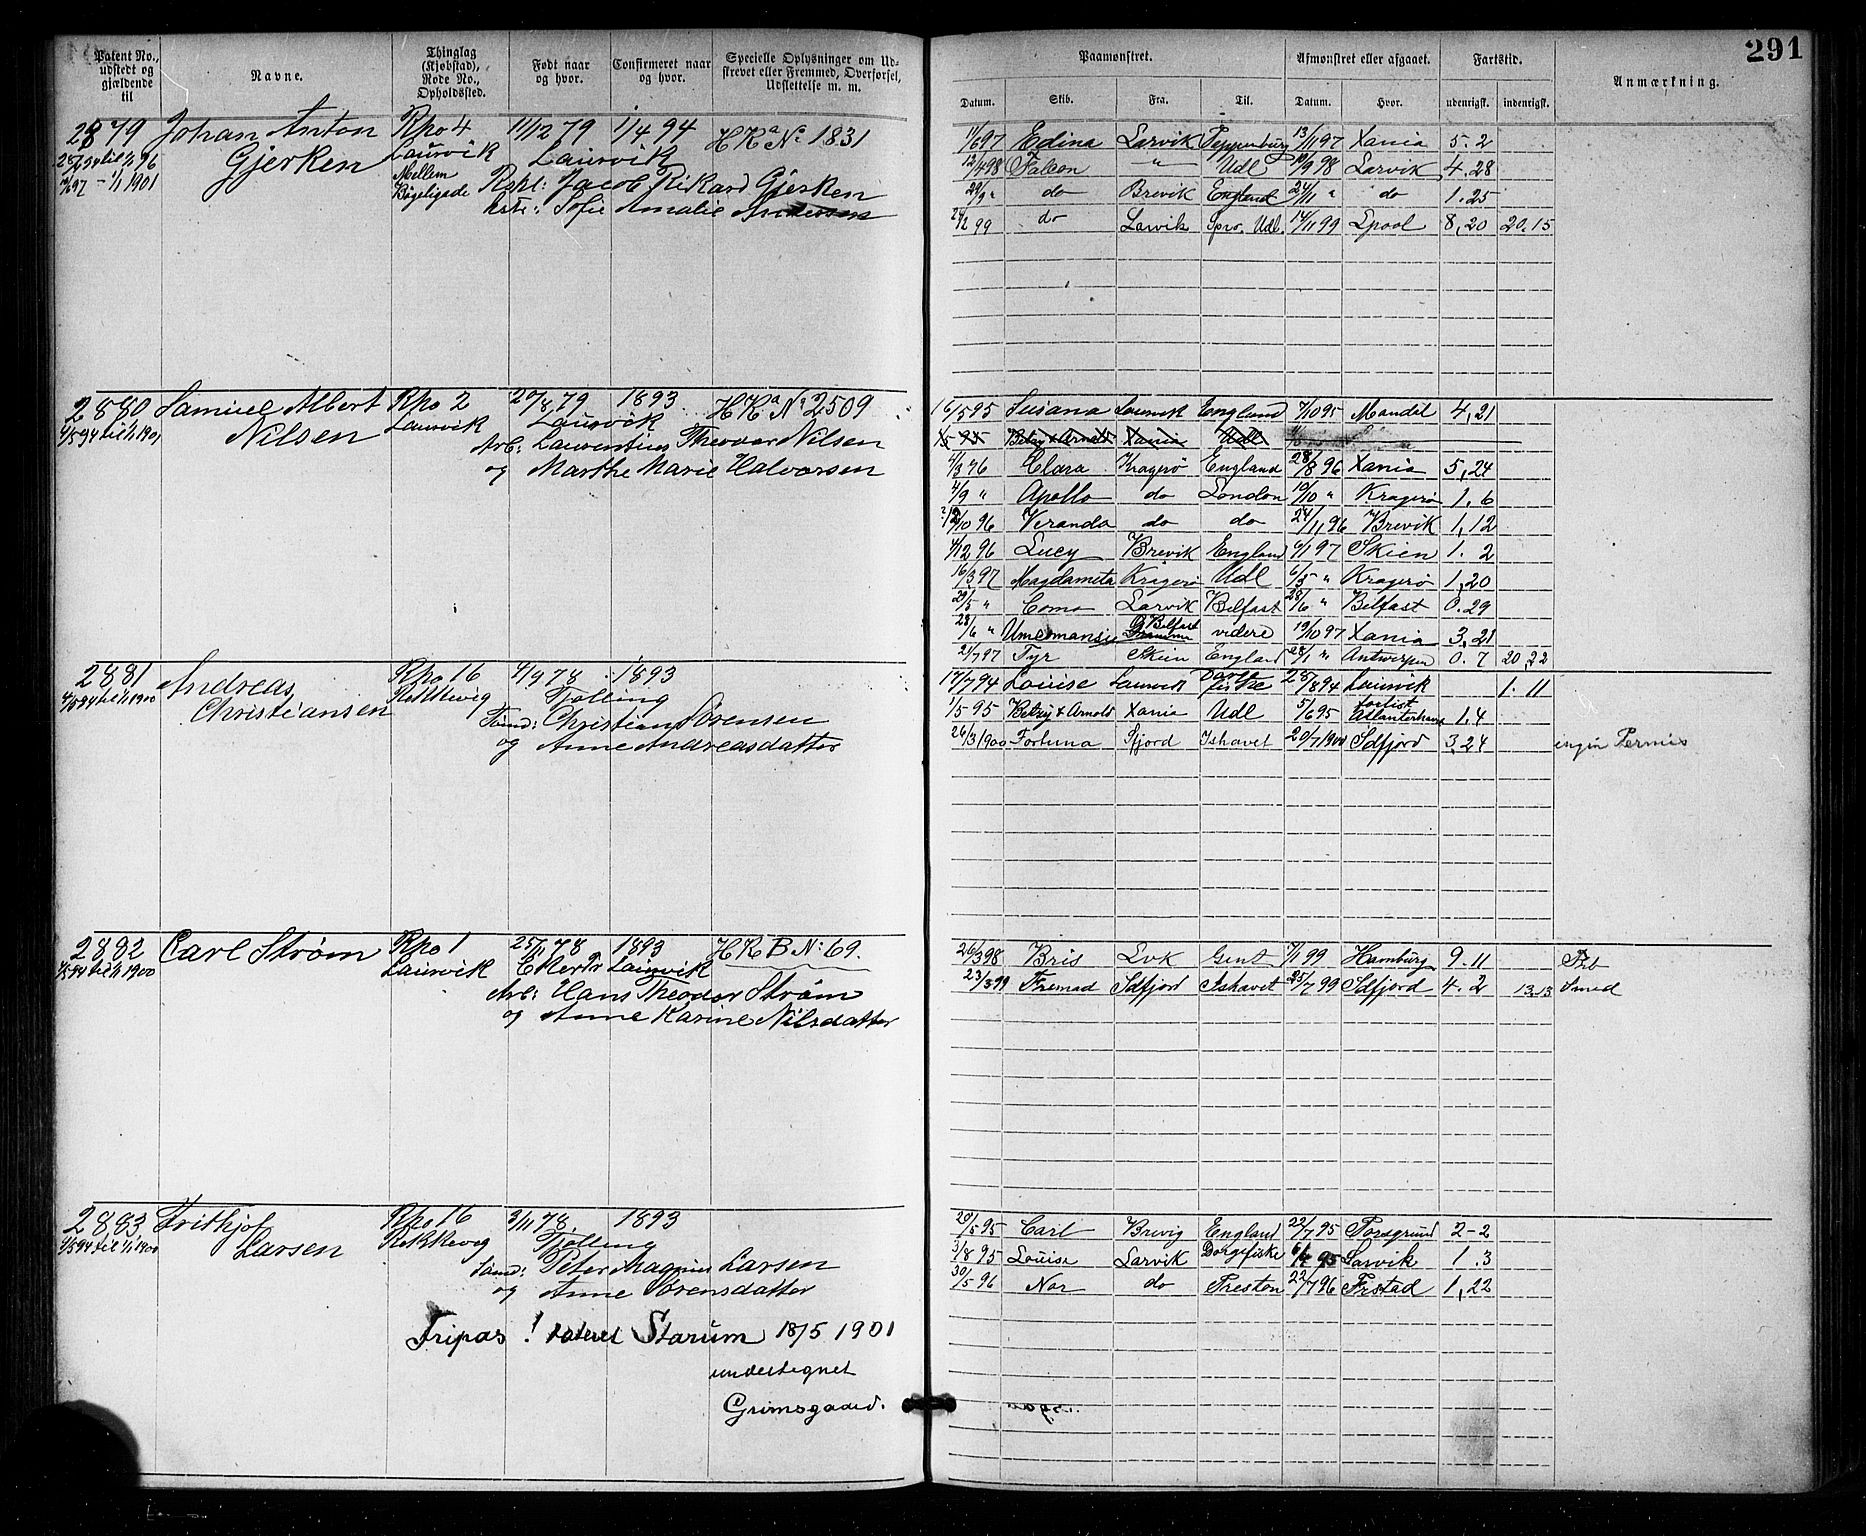 291
Patent No., udstedt og gjældende til
Navne.
Thinglag (Kjøbstad), Rode No., Opholdssted.
Født naar og hvor.
Confirmeret naar og hvor.
Specielle Oplysninger om Udstrevet eller Fremmed, Overførsel, Udslettelse m. m.
Paamønstret.
Afmønstret eller afgaaet.
Fartstid.
Anmærkning.
Datum. Skib. Fra. Til. Datum. Hvor. udenrigsk. indenrigsk.
2879 Johan Anton Gjerken
Rpo 4 Laurvik Mellem Bøgeligade
11/12 79 Laurvik
1/4 94
HKa No 1831
Jacob Rikard Gjerken
Sofie Amalie Andersen
11/6 97 Edina Larvik 13/11 97 Xania 5. 2
12/4 98 Falcon " Udl 10/9 98 Larvik 4. 28
29/9 " do Brevik England 24/11 " do 1. 25
24/2 99 do Larvik Spro. Udl. 14/11 99 Lpool 8, 20 20. 15
2880 Samuel Albert Nilsen
4/5 94 til 1/1 1901
Rpo 2 Laurvik
27/8 79 Laurvik
1893
HKa No 2509
Arb: Laurentius Theodor Nilsen
og Marthe Marie Halvorsen
16/5 95 Susana Laurvik England 7/10 95 Mandal 4, 21
Betzy & Arnold Xania Udl
4/3 96 Clara Kragerø England 28/8 96 Xania 5, 24
4/9 " Apollo do London 10/10 " Kragerø 1, 6
12/10 96 Veranda do do 24/11 96 Brevik 1, 12
4/12 96 Lucy Brevik England 6/1 97 Skien 1. 2
16/3 97 Magdameta Krigerø Udl 6/5 " Kragerø 1, 20
29/5 " Como Larvik Belfast 28/6 " Belfast 0. 29
28/6 " Belfast videre 19/10 97 Xania 3, 21
21/7 97 Tyr Skien England 28/1 " Antwerpen 0. 7 20, 22
2881 Andreas Christiansen
4/5 94 til 1/1 1900
Rpo 16 Rekkevig
4/9 78 Tjølling
1893
Sømd: Christian Sørensen
og Anne Andreasdatter
17/7 94 Louise Laurvik 28/8 94 Laurvik 1. 11
1/5 95 Betzy & Arnold Xania Udl 5/6 95 forlist Atlanterhav 1. 4
26/3 1900 Fortuna Sfjord Ishavet 20/7 1900 Sdfjord 3, 24
2882 Carl Strøm
4/5 94 til 1/1 1900
Rpo 1 Laurvik
25/11 78
1893 Laurvik
HK B No: 69.
Arb: Hans Theodor Strøm
og Anne Karine Nilsdatter
26/3 98 Bris Lvk Gent 7/1 99 Hamburg 9. 11
23/3 99 Fremad Sdfjord Ishavet 25/7 99 Sdfjord 4. 2 13.13 Smed
2883 Frithjof Larsen
4/5 94 til 1/1 1900
Rpo 16 Rekkevig
3/11 78. Tjølling
1893
Sømd: Peter Magnus Larsen
og Anne Sørensdatter
20/5 95 Carl Brevig England 22/7 95 Porsgrund 2-2
3/8 95 Louise Larvik Dorgefiske Larvik 1. 3
30/5 96 Nor do Preston 22/7 96 Frstad 1, 22
Fripas ! dateret Starum 18/5 1901
undertegnet
Grimsgaard.